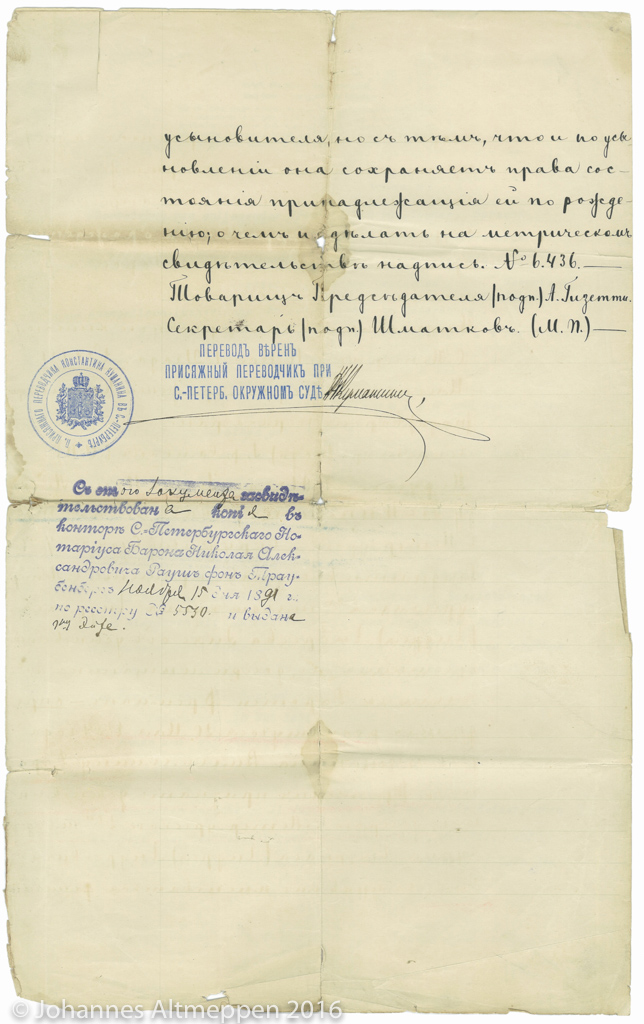 усыновителя, но съ тѣмъ, что и по усы
новленіи она сохраняетъ права сос-
тоянія принадлежащія ей по рожде-
нію; о чемъ и сдѣлать на метрическомъ
свидѣтельствѣ надпись. № 6.436. —
Товарищъ Предсѣдателя (подп.) А. Гизетти.
Секретарь (подп) Шматковъ. (М. П.) —
ПЕРЕВОДЪ ВѢРЕНЪ
ПРИСЯЖНЫЙ ПЕРЕВОДЧИКЪ ПРИ
С.-ПЕТЕРБ. ОКРУЖНОМЪ СУДѢ
ПРИСЯЖНАГО ПЕРЕВОДЧИКА КОНСТАНТИНА ВЪ С.-ПЕТЕРБУРГѢ
Съ сего документа засвидѣ-
тельствована копія въ
конторѣ С.-Петербургскаго Но-
таріуса Барона Николая Алек-
сандровича Раушъ фонъ Трау-
бенбергъ Ноября 15 дня 1891 г.
по реестру № 5530. и выдана
© Johannes Altmeppen 2016